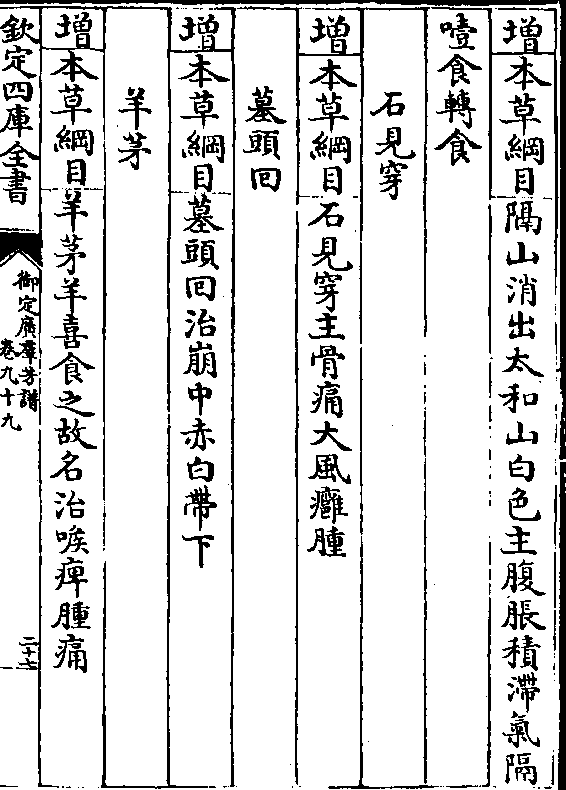 增本草綱目隔山消出太和山白色主腹脹積滯氣隔
噎食轉食
石見穿
增本草綱目石見穿主骨痛大風癰腫
墓頭回
增本草綱目墓頭回治崩中赤白帶下
羊茅
增本草綱目羊茅羊喜食之故名治喉痺腫痛
欽定四庫全書
御定廣羣芳譜
卷九十九
二十七